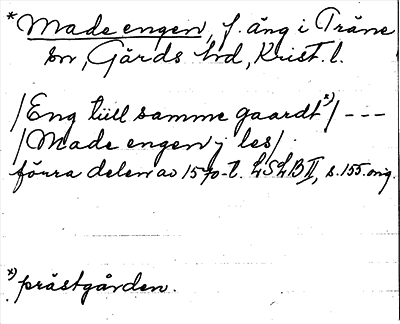 *Made engen, f. äng i Träne
sn, Gärds hd, Krist. l.
/Eng till samme gaardt *)/ ---
/Made engen j les/
förra delen av 1570-t. LSLB II, s. 155. orig.
*) prästgården.